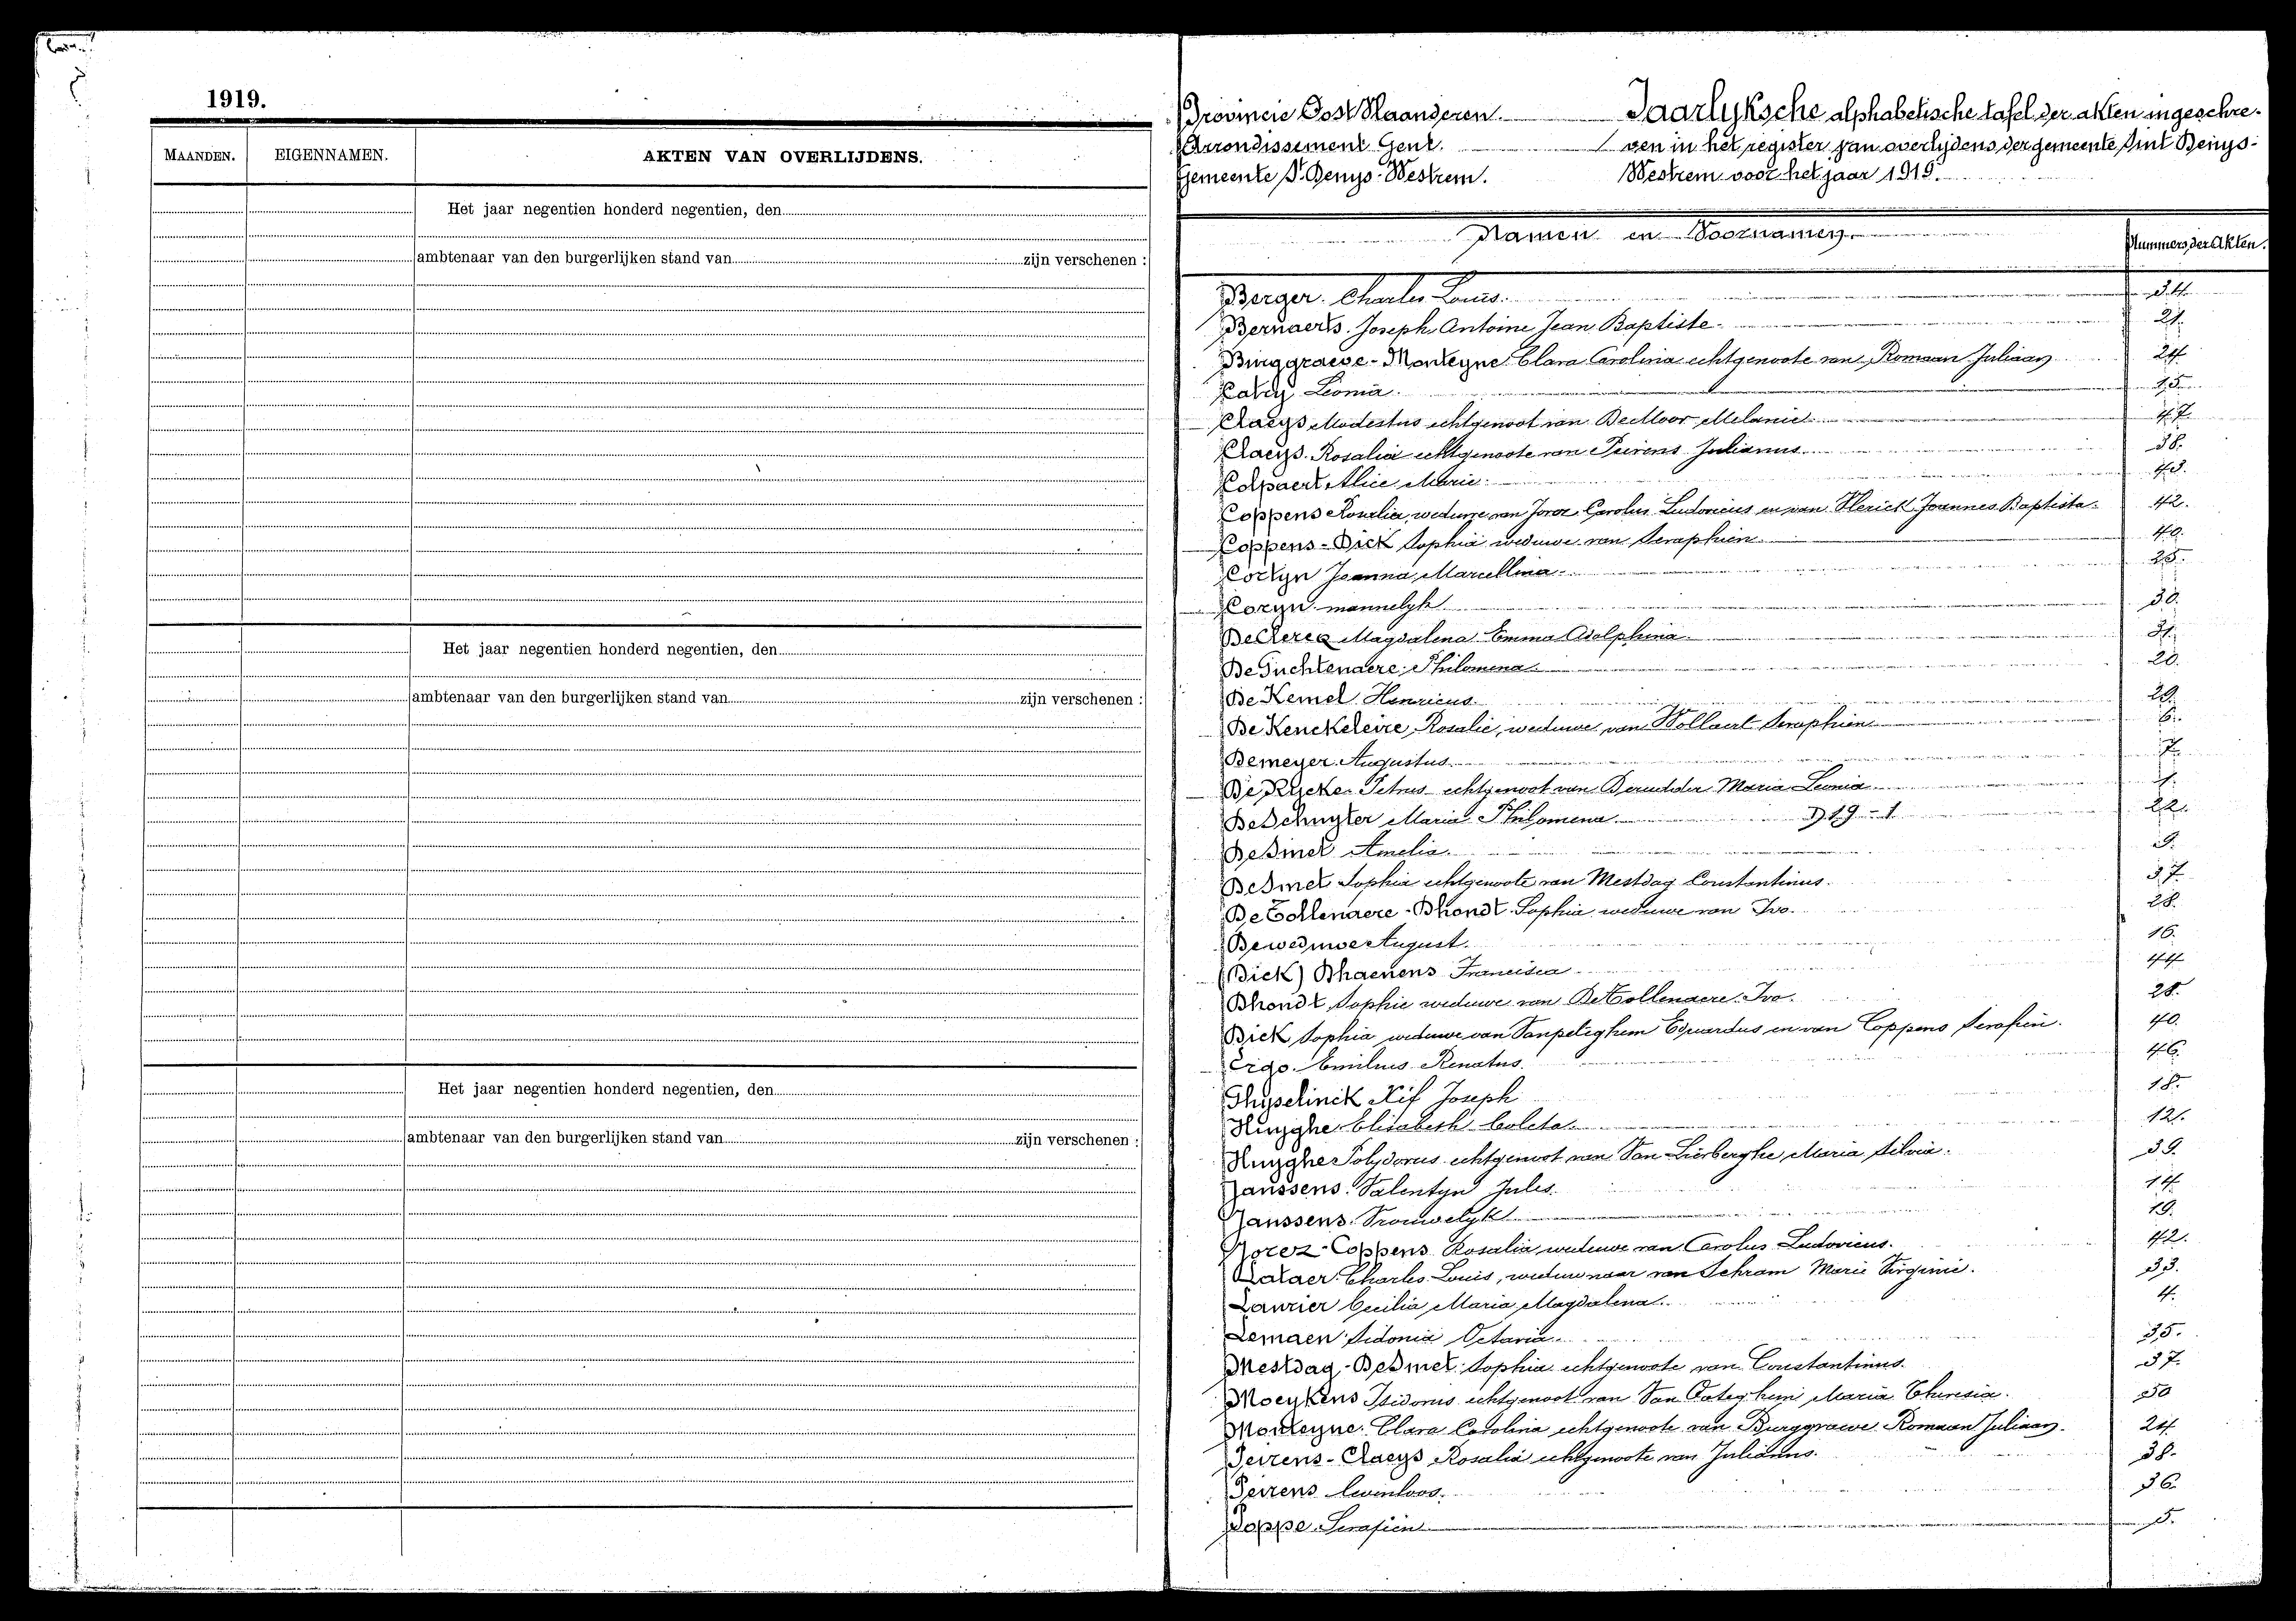 1919.
MAANDEN. EIGENNAMEN. AKTEN VAN OVERLIJDENS.
Het jaar negentien honderd negentien, den
ambtenaar van den burgerlijken stand van zijn verschenen :
Het jaar negentien honderd negentien, den
ambtenaar van den burgerlijken stand van zijn verschenen :
Het jaar negentien honderd negentien, den
ambtenaar van den burgerlijken stand van zijn verschenen :
Provincie Oost Vlaanderen. Jaarlyksche alphabetische tafel der akten ingeschre-
Arrondissement Gent. ven in het register van overlydens der gemeente Sint Denys-
Gemeente St Denys-Westrem. Westrem voor het jaar 1919.
Namen en Voornamen. Nummers der Akten.
Berger Charles Louis. 34.
Bernaerts Joseph Antoine Jean Baptiste. 21.
Burggraeve-Monteyne Clara Carolina echtgenoote van Romaan Juliaan 24
Catry Leonia. 15.
Claeys Modestus echtgenoot van De Moor Melanie 47.
Claeys Rosalia echtgenoote van Peirens Julianus. 38.
Colpaert Alice Marie. 43.
Coppens Rosalia, weduwe van Jorez Carolus Ludovicus en van Vlerick Joannes Baptista. 42.
Coppens-Dick Sophia weduwe van Seraphien. 40.
Cortyn Joanna Marcellina. 25.
Coryn mannelyk. 30.
De Clercq Magdalena Emma Adolphina. 31.
De Fuchtenaere Philomena. 20.
De Kemel Henricus. 29.
De Kenckeleire Rosalie, weduwe van Wollaert Seraphien. 6.
Demeyer Augustus. 7.
De Rycke Petrus echtgenoot van Maria Leonia. 1.
De Schuyter Maria Philomena. D 19 - 1 22.
De Smet Amelia. 9.
De Smet Sophia echtgenoote van Mestdag Constantinus. 37.
De Tollenaere-Dhondt Sophia weduwe van Ivo. 28.
Deweduwe August. 16.
(Dick) Dhaenens Francisca. 44
Dhondt Sophie weduwe van De Tollenaere Ivo. 28.
Dick Sophia weduwe van Vanpeteghem Eduardus en van Coppens Serafien. 40.
Ergo Emilius Renatus. 46.
Ghyselinck Nif Joseph 18.
Huyghe Elisabeth Coleta. 12.
Huyghe Polydorus echtgenoot van Van Lierberghe Maria Silvia. 39.
Janssens Valentyn Jules. 14
Janssens Vrouwelyk 19.
Jorez-Coppens Rosalia weduwe van Carolus Ludovicus. 42.
Lataer Charles Louis, weduwnaar van Schram Marie Virginie. 33.
Laurier Cecilia Maria Magdalena. 4.
Lemaen Sidonia Octavia. 35.
Mestdag-De Smet Sophia echtgenoote van Constantinus. 37.
Moeykens Isidorus echtgenoot van Van Oateghem Maria Theresia. 50
Monteyne Clara Carolina echtgenoote van Burggraeve Romaan Juliaan. 24.
Peirens-Claeys Rosalia echtgenoote van Julianus. 38.
Peirens levenloos. 36.
Poppe Serafien. 5.